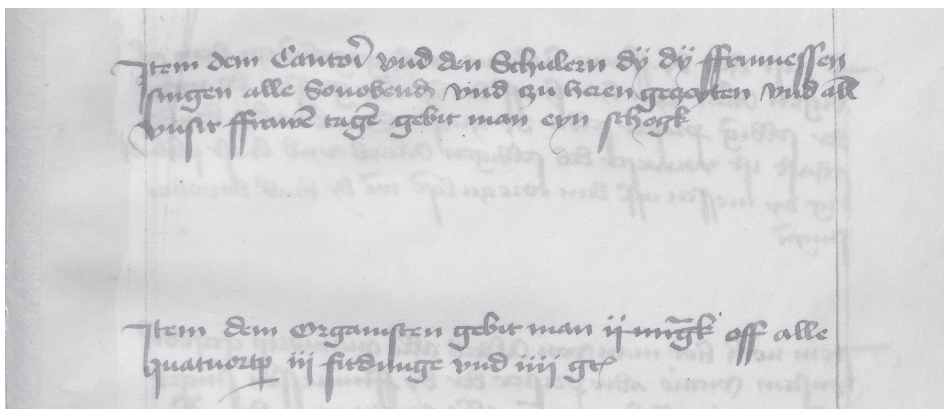 Item dem Cantori vnd den Schulern dy dy ffrauwessen
singen alle Sonobend vnd zu heren geczyten vnd all
vnsir ffrawē tagē gebit man eyn schogk
Item dem Organisten gebit man ii mrgk off alle
quatuortp iii firdunge vnd iiii gr